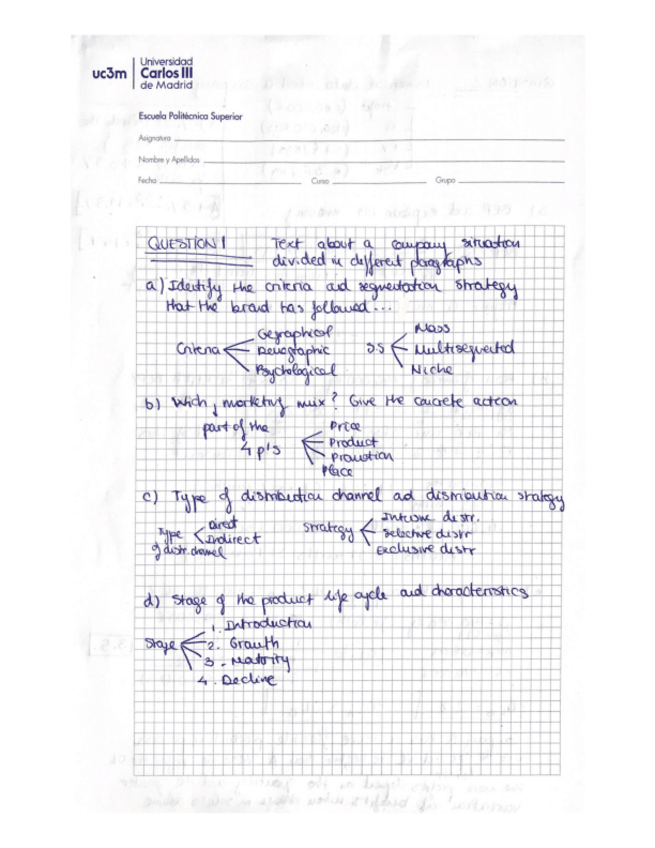 uc3m
Universidad
Carlos III
de Madrid
Escuela Politécnica Superior
Asignatura
Nombre y Apellidos
Fecha Curso Grupo
QUESTION 1 Text about a company situation
divided in different paragraphs
a) Identify the criteria and segmentation strategy
that the brand has followed...
Criteria Geographical Demographic Psychological
S.S Mass Multisegmented Niche
b) Wich, marketing mux? Give the concrete action
part of the
4 p's Price Product Promotion Place
c) Type of distribution channel and distribution strategy
Type of distr. channel Direct Indirect
Strategy distr. Selective distr Exclusive distr
d) Stage of the product life cycle and characteristics
Stage
1. Introduction
2. Growth
3. Maturity
4. Decline